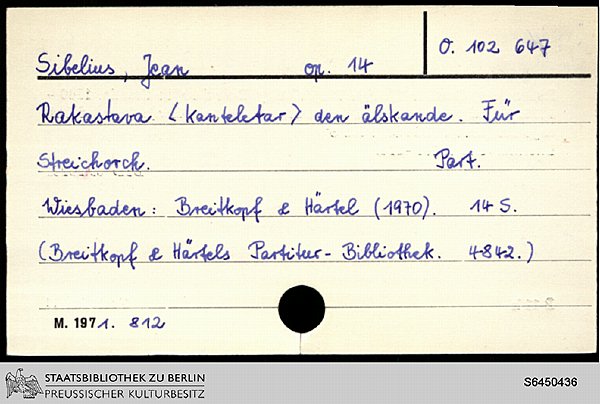 O. 102 647
Sibelius, Jean op. 14
Rakastava <Kanteletar> den älskande. Für
Streichorch. Part.
Wiesbaden: Breitkopf & Härtel (1970). 14 S.
(Breitkopf & Härtels Partitur-Bibliothek. 4842.)
M. 1971. 812
STAATSBIBLIOTHEK ZU BERLIN
PREUSSISCHER KULTURBESITZ
S6450436